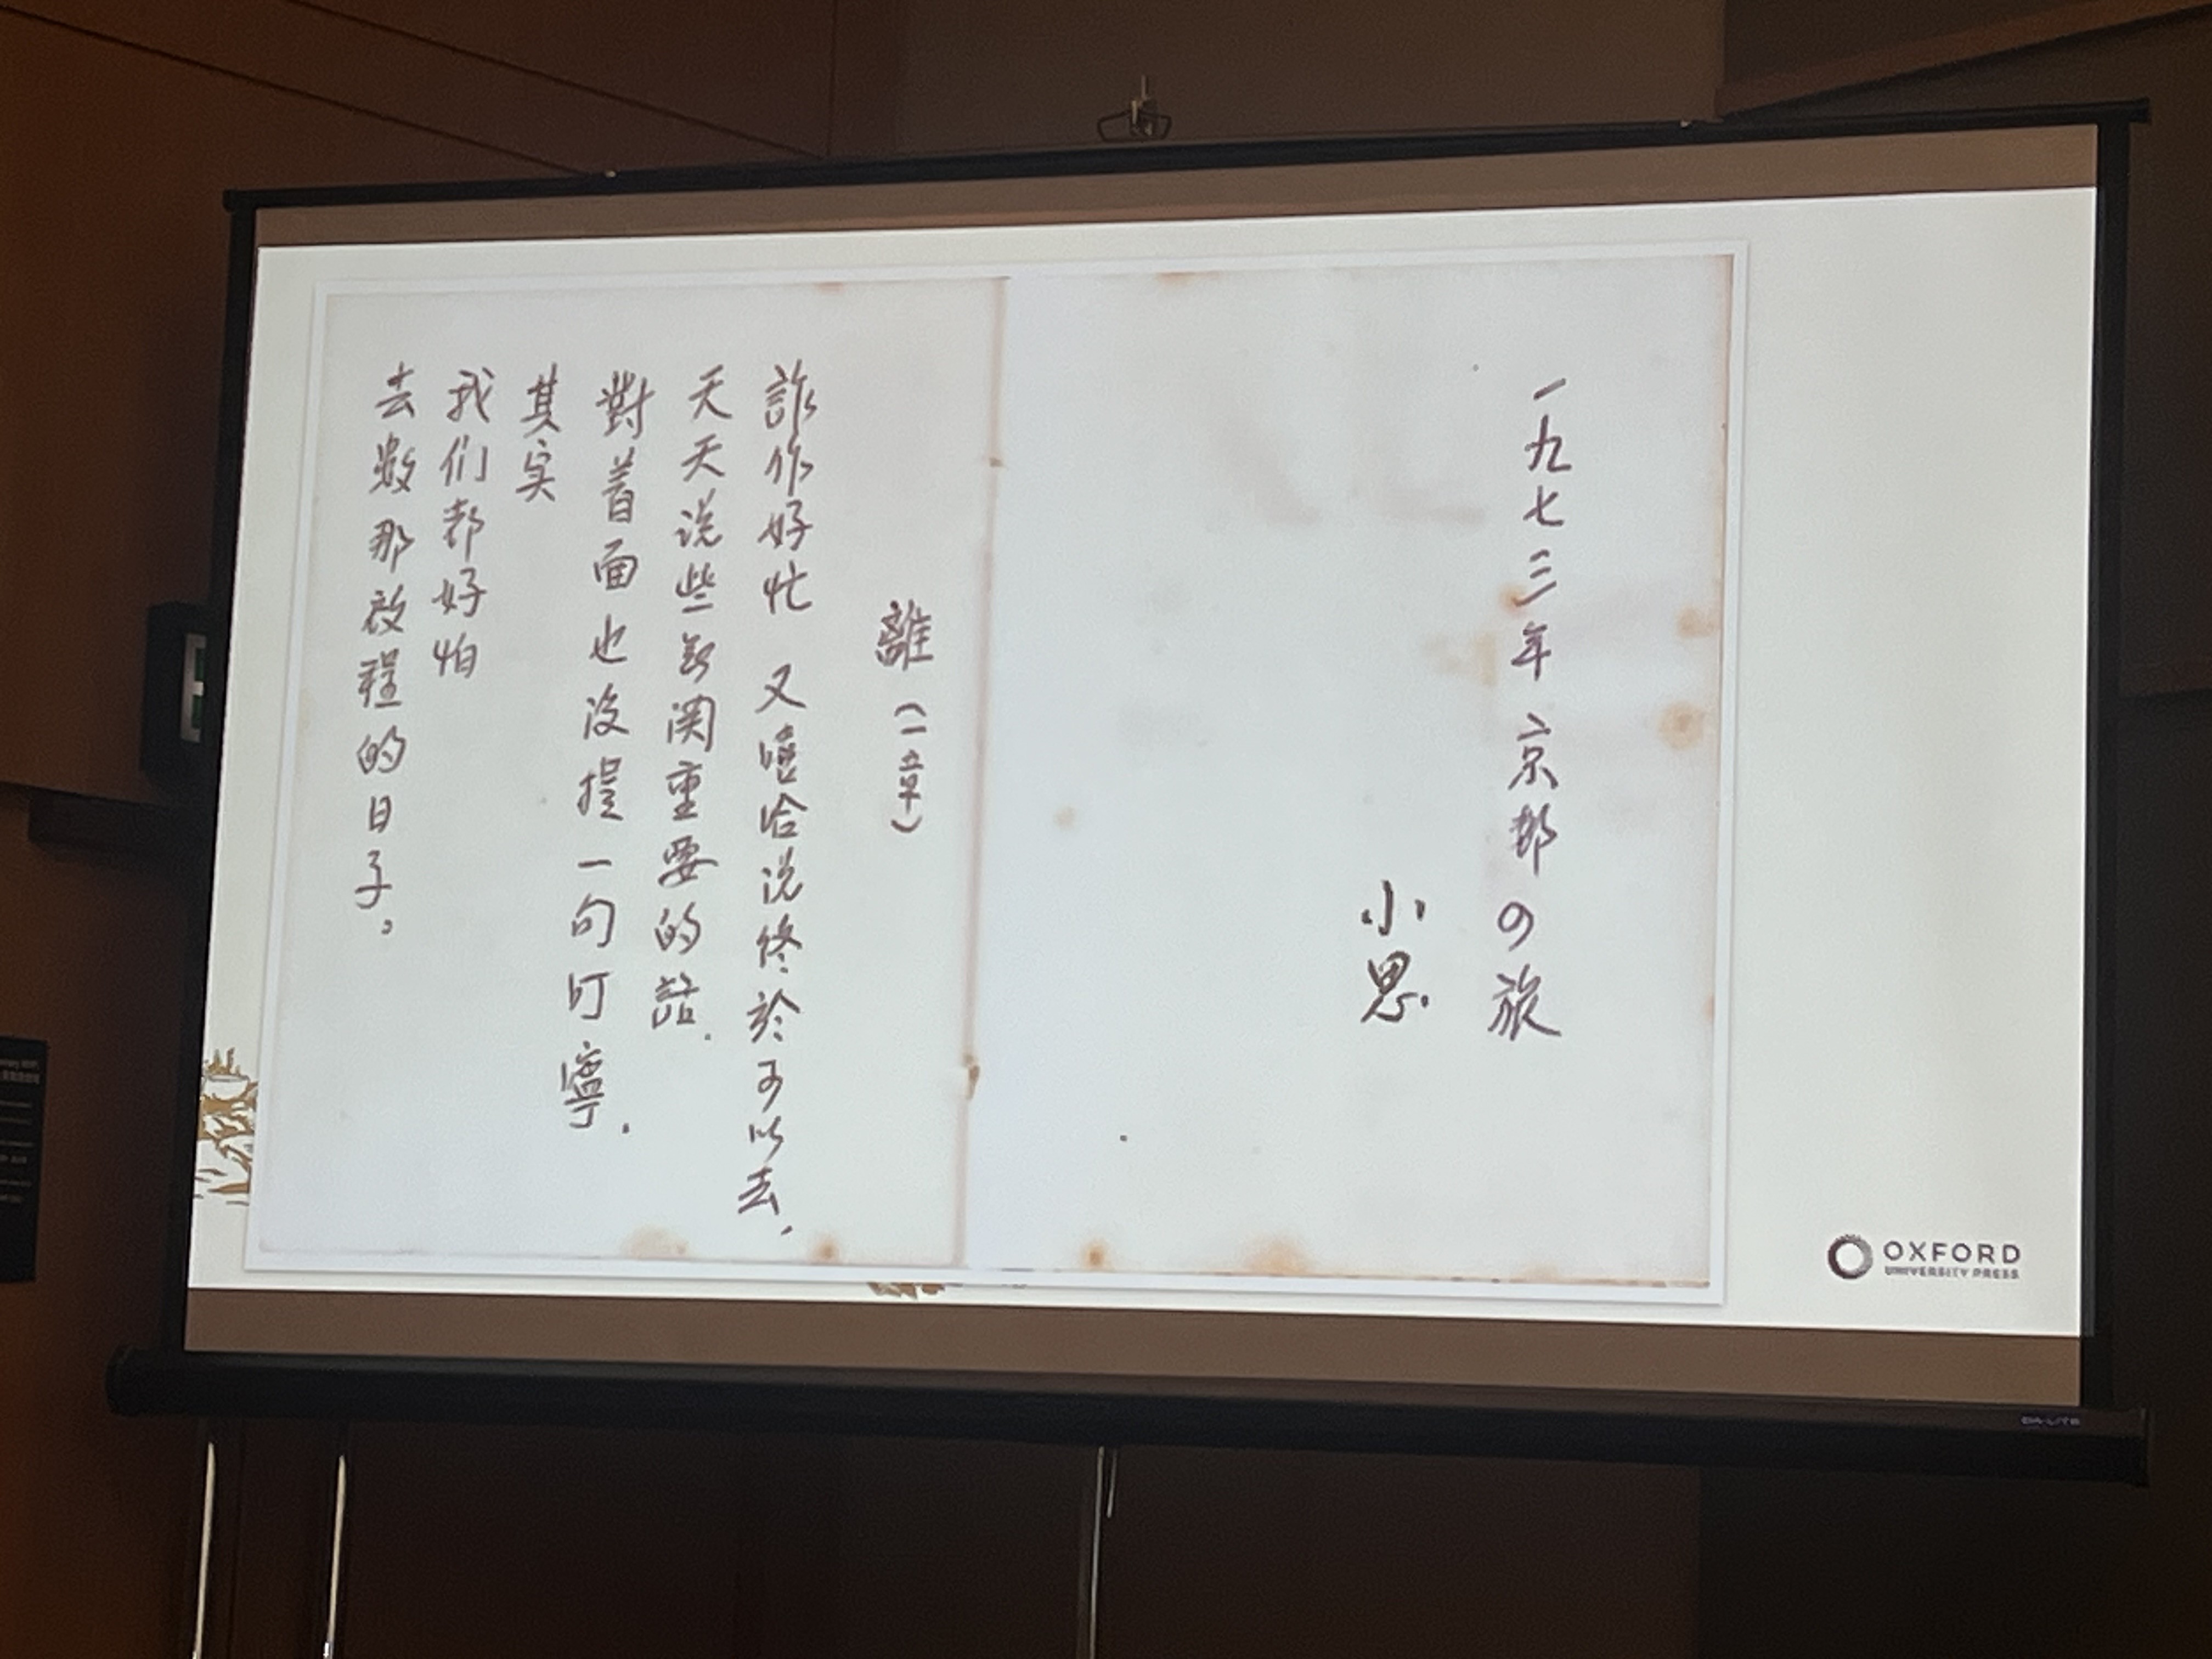 一九七三年京都の旅
小思
離(一章)
詐作好忙 又嘻哈说終於可以去,
天天说些无関重要的話.
對着面也没提一句叮嚀.
其实
我们都好怕
去數那啟程的日子。
OXFORD
UNIVERSITY PRESS
DA-LITE